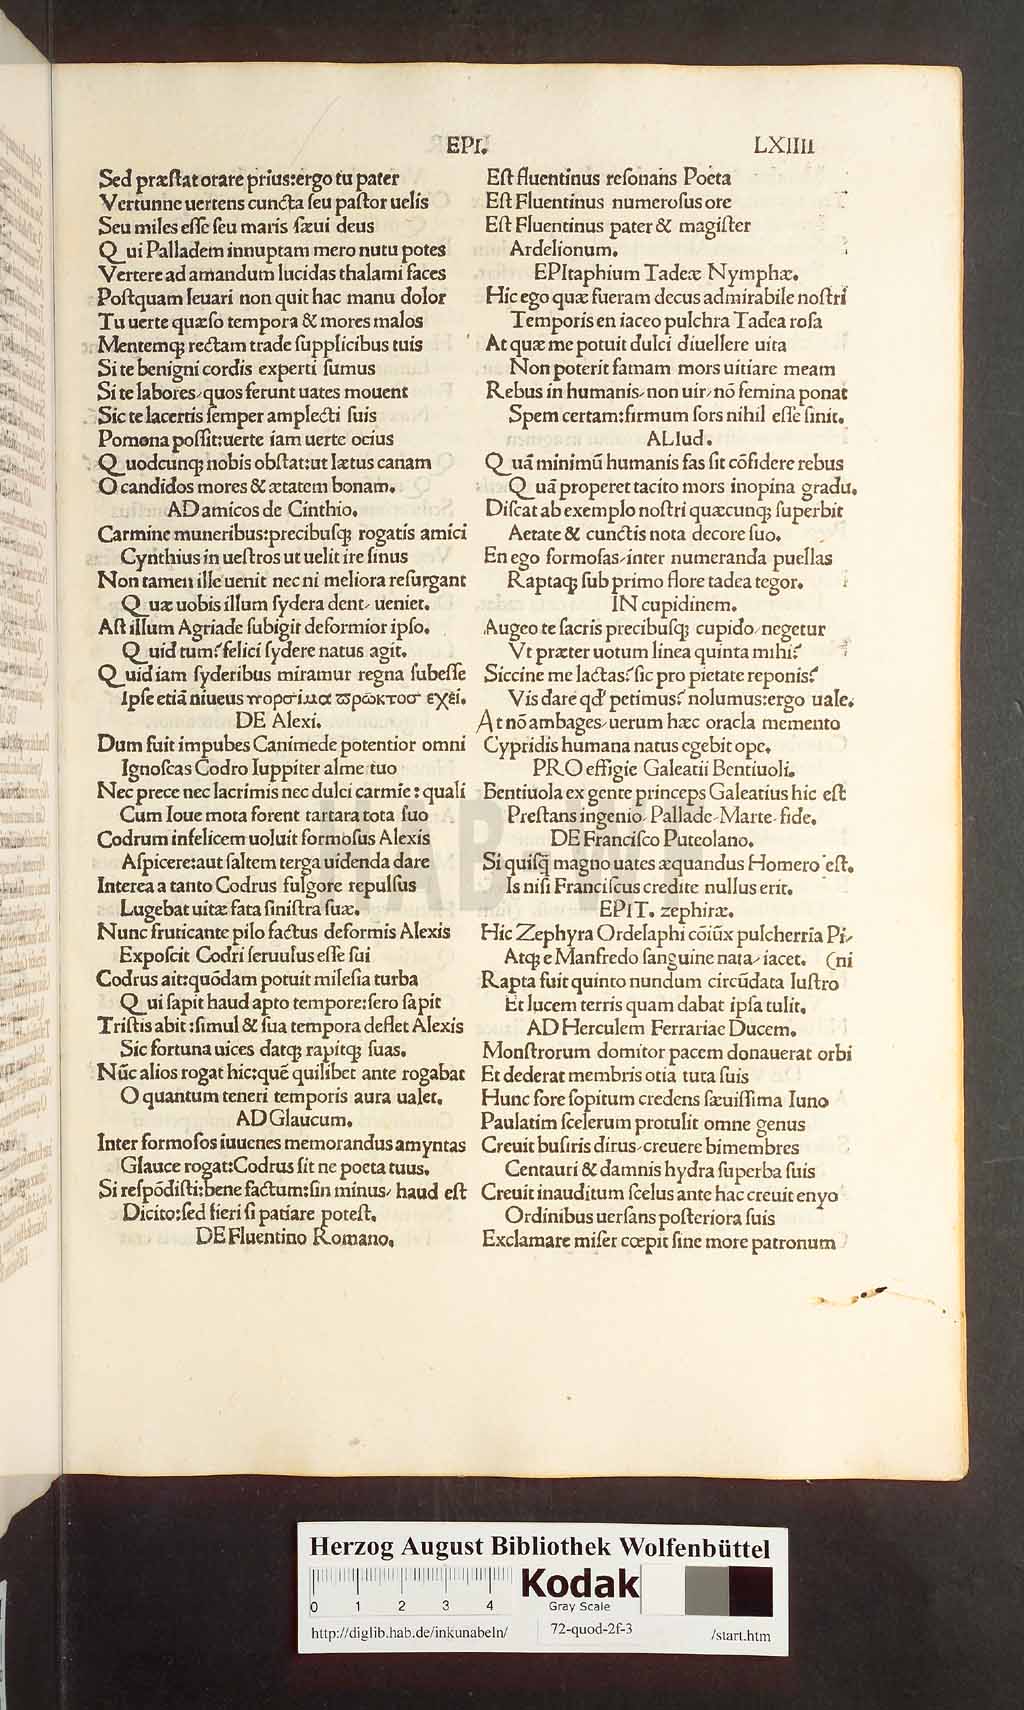 EPI.
LXIIII
Sed præſtat orare prius:ergo tu pater
Vertunne uertens cuncta ſeu paſtor uelis
Seu miles eſſe ſeu maris ſæui deus
Qui Palladem innuptam mero nutu potes
Vertere ad amandum lucidas thalami faces
Poſtquam leuari non quit hac manu dolor
Tu uerte quæſo tempora & mores malos
Mentemq; rectam trade ſupplicibus tuis
Si te benigni cordis experti ſumus
Si te labores, quos ferunt uates mouent
Sic te lacertis ſemper amplecti ſuis
Pomona poſſit:uerte iam uerte ocius
Quodcunq; nobis obſtat:ut lætus canam
O candidos mores & ætatem bonam.
AD amicos de Cinthio.
Carmine muneribus:precibuſq; rogatis amici
Cynthius in ueſtros ut uelit ire ſinus
Non tamen ille uenit nec ni meliora reſurgant
Quæ uobis illum ſydera dent, ueniet.
Aſt illum Agriade ſubigit deformior ipſo.
Quid tum? felici ſydere natus agit.
Quid iam ſyderibus miramur regna ſubeſſe
Ipſe etiã niueus πορσίμα ϖρωκτοσ εχεί.
DE Alexi.
Dum fuit impubes Canimede potentior omni
Ignoſcas Codro Iuppiter alme tuo
Nec prece nec lacrimis nec dulci carmie: quali
Cum Ioue mota forent tartara tota ſuo
Codrum infelicem uoluit formoſus Alexis
Aſpicere:aut ſaltem terga uidenda dare
Interea a tanto Codrus fulgore repulſus
Lugebat uitæ fata ſiniſtra ſuæ.
Nunc fruticante pilo factus deformis Alexis
Expoſcit Codri ſeruulus eſſe ſui
Codrus ait:quõdam potuit mileſia turba
Qui ſapit haud apto tempore:ſero ſapit
Triſtis abit:ſimul & ſua tempora deflet Alexis
Sic fortuna uices datq; rapitq; ſuas.
Nũc alios rogat hic:quẽ quilibet ante rogabat
O quantum teneri temporis aura ualet.
AD Glaucum.
Inter formoſos iuuenes memorandus amyntas
Glauce rogat:Codrus ſit ne poeta tuus.
Si reſpõdiſti:bene factum:ſin minus, haud eſt
Dicito:ſed fieri ſi patiare poteſt.
DE Fluentino Romano.
Eſt fluentinus reſonans Poeta
Eſt Fluentinus numeroſus ore
Eſt Fluentinus pater & magiſter
Ardelionum.
EPItaphium Tadeæ Nymphæ.
Hic ego quæ fueram decus admirabile noſtri
Temporis en iaceo pulchra Tadea roſa
At quæ me potuit dulci diuellere uita
Non poterit famam mors uitiare meam
Rebus in humanis, non uir, nõ femina ponat
Spem certam:firmum ſors nihil eſſe ſinit.
ALIud.
Quã minimũ humanis fas ſit cõfidere rebus
Quã properet tacito mors inopina gradu.
Diſcat ab exemplo noſtri quæcunq; ſuperbit
Aetate & cunctis nota decore ſuo.
En ego formoſas, inter numeranda puellas
Raptaq; ſub primo flore tadea tegor.
IN cupidinem.
Augeo te ſacris precibuſq; cupido, negetur
Vt præter uotum linea quinta mihi?
Siccine me lactas? ſic pro pietate reponis?
Vis dare qđ petimus? nolumus:ergo uale.
At nõ ambages, uerum hæc oracla memento
Cypridis humana natus egebit ope.
PRO effigie Galeatii Bentiuoli.
Bentiuola ex gente princeps Galeatius hic eſt
Preſtans ingenio, Pallade, Marte, fide.
DE Franciſco Puteolano.
Si quiſq̃ magno uates æquandus Homero eſt.
Is niſi Franciſcus credite nullus erit.
EPIT. zephiræ.
Hic Zephyra Ordelaphi cõiũx pulcherria Pi,
Atq; e Manfredo ſanguine nata, iacet. (ni
Rapta fuit quinto nundum circũdata luſtro
Et lucem terris quam dabat ipſa tulit.
AD Herculem Ferrariae Ducem.
Monſtrorum domitor pacem donauerat orbi
Et dederat membris otia tuta ſuis
Hunc fore ſopitum credens ſæuiſſima Iuno
Paulatim ſcelerum protulit omne genus
Creuit buſiris dirus, creuere bimembres
Centauri & damnis hydra ſuperba ſuis
Creuit inauditum ſcelus ante hac creuit enyo
Ordinibus uerſans poſteriora ſuis
Exclamare miſer cœpit ſine more patronum
HAB-W
Herzog August Bibliothek Wolfenbüttel
0 1 2 3 4
Kodak
Gray Scale
http://diglib.hab.de/inkunabeln/
72-quod-2f-3
/start.htm